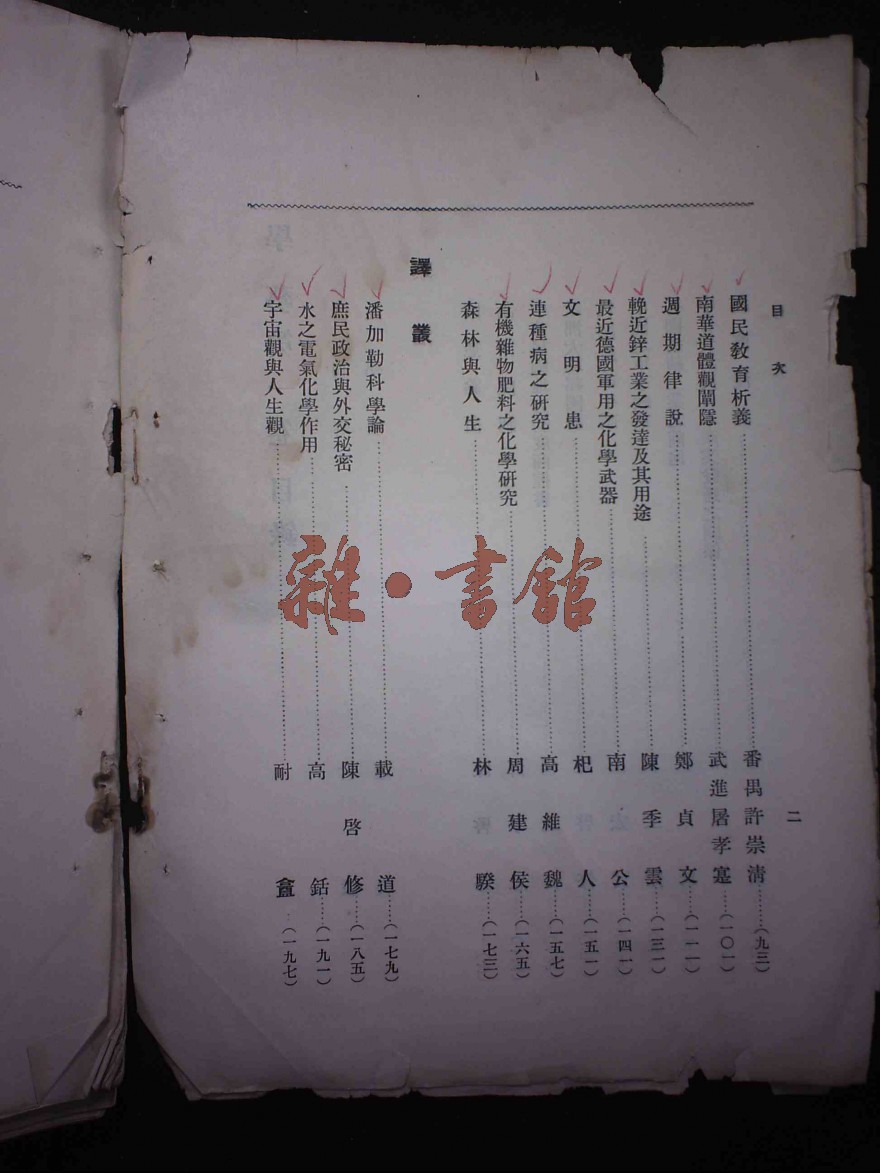 目次
二
國民教育析義……番禺許崇清……(九三)
南華道體觀闡隱……武進屠孝寔……(一〇一)
週期律說……鄭貞文……(一一一)
輓近鋅工業之發達及其用途……陳季雲……(一三一)
最近德國軍用之化學武器……南公……(一四一)
文明患……杞人……(一五一)
連種病之研究……高維魏……(一五七)
有機雜物肥料之化學研究……周建侯……(一六五)
森林與人生……林騤……(一七三)
譯叢
潘加勒科學論……載道……(一七九)
庶民政治與外交秘密……陳啓修……(一八五)
水之電氣化學作用……高銛……(一九一)
宇宙觀與人生觀……耐盦……(一九七)
雜·書館